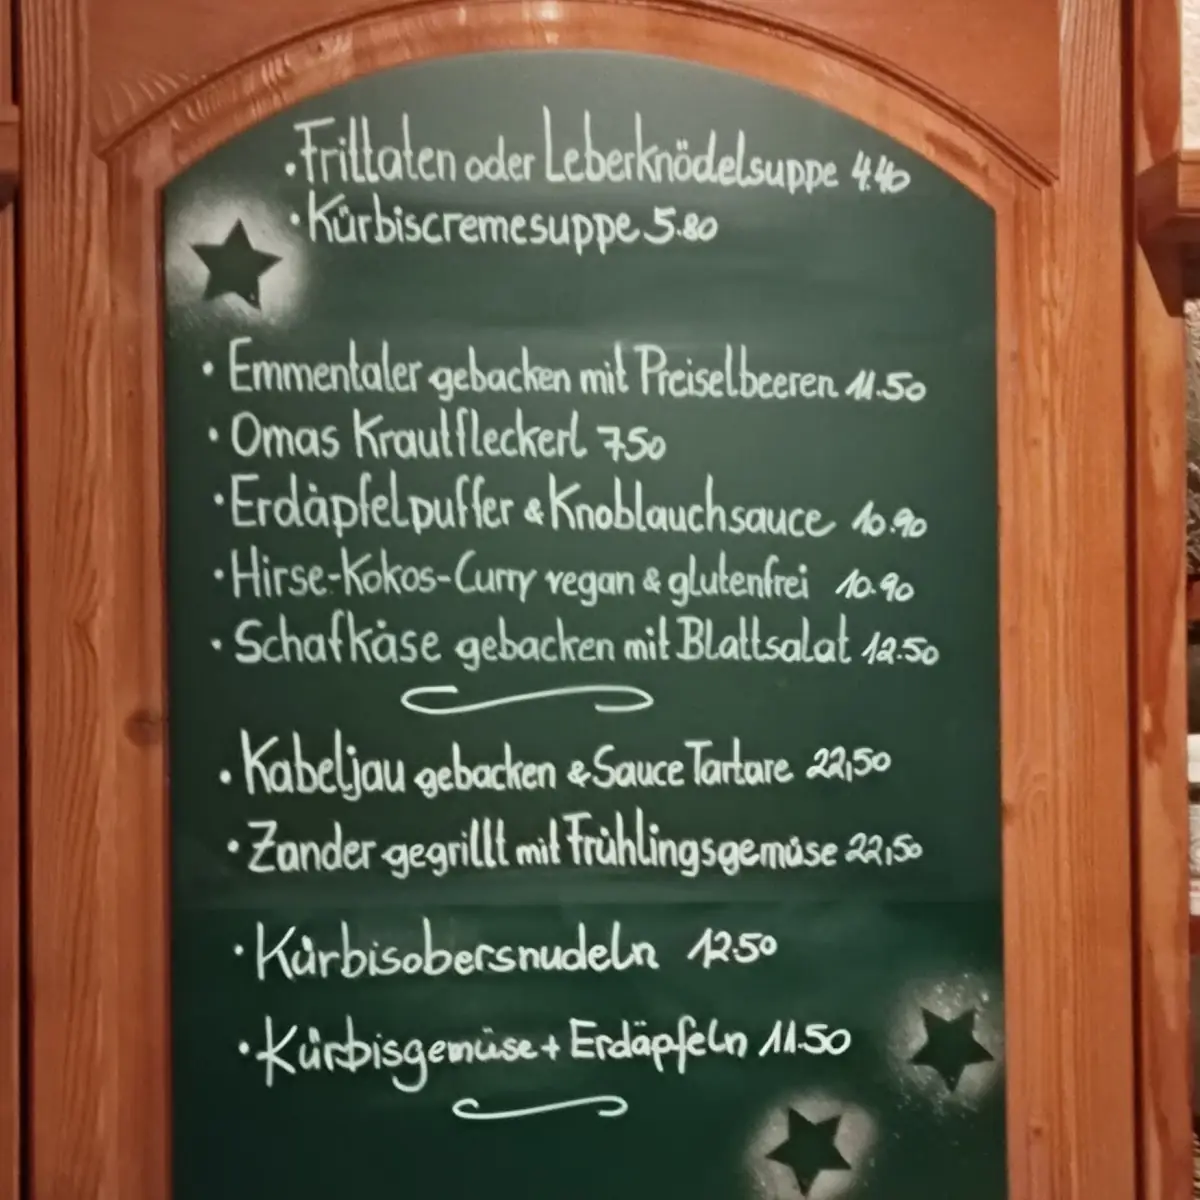 · Frittaten oder Leberknödelsuppe 4.40
· Kürbiscremesuppe 5.80
· Emmentaler gebacken mit Preiselbeeren 11.50
· Omas Krautfleckerl 7.50
· Erdäpfelpuffer & Knoblauchsauce 10.90
· Hirse-Kokos-Curry vegan & glutenfrei 10.90
· Schafkäse gebacken mit Blattsalat 12.50
· Kabeljau gebacken & Sauce Tartare 22,50
· Zander gegrillt mit Frühlingsgemüse 22,50
· Kürbisobersnudeln 12.50
· Kürbisgemüse + Erdäpfeln 11.50